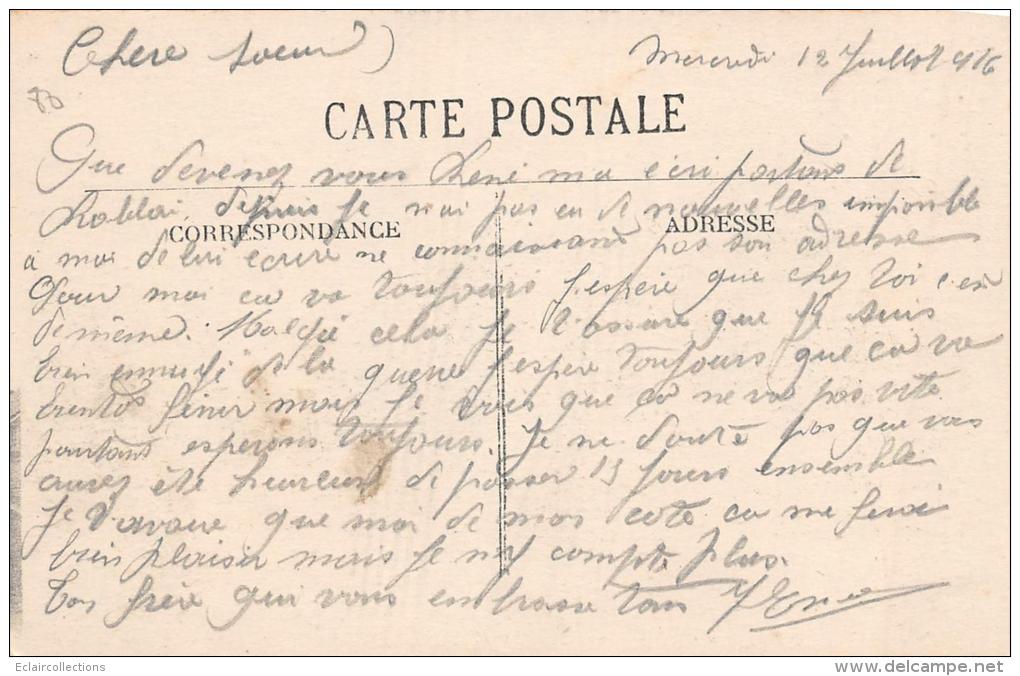 Chère soeur
Mercredi 12 Juillet 916
80
CARTE POSTALE
Que devenez vous René ma écri partant de
depuis je nai pas eu de nouvelles imposible
CORRESPONDANCE
ADRESSE
a moi de lui écrire ne connaissant pas son adresse
Pour moi ca va toujours j'espère que chez toi c'est
de même. Malgré cela je t'assure que je suis
bien ennuyé de la guerre j'espère toujours que ca va
bientôt finir mais je crois que ca ne va pas vite
pourtant esperons toujours. Je ne doute pas que vous
aurez été heureux de passer 15 jours ensemble
Je t'avoue que moi de mon coté ca me ferai
bien plaisir mais je ny compte plus.
Ton frère qui vous embrasse tous
Eclaircollections
www.delcampe.net